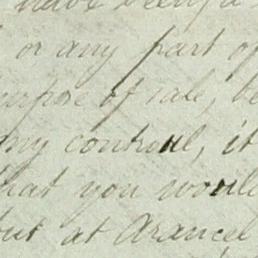 have been
or any part of
purpose of sale, be
any controul, it
that you would
but at Arancel